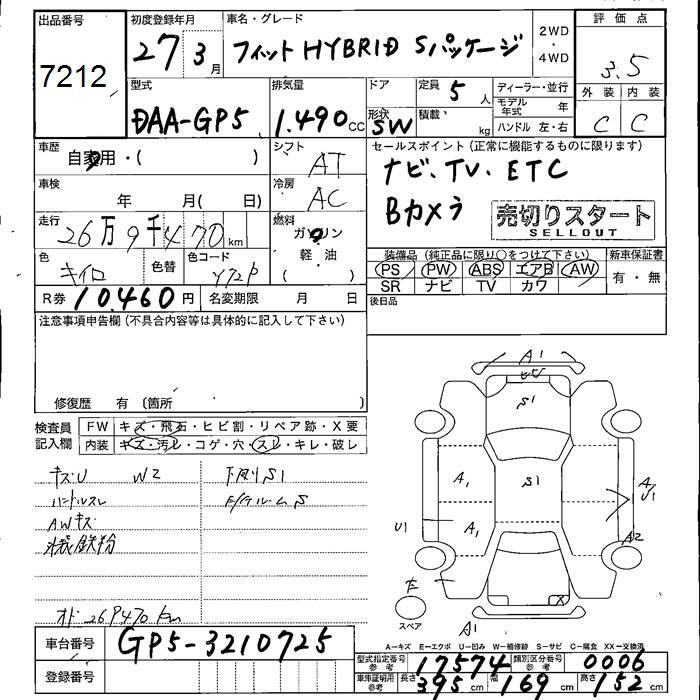 出品番号
7212
初度登録年月
27 3月
車名・グレード
フィット HYBRID Sパッケージ
2WD
・
4WD
評価点
3.5
外装 内装
C C
型式
DAA-GP5
排気量
1.490cc
ドア
形状 SW
定員 5人
積載 kg
ディーラー・並行
モデル年式 年
ハンドル 左・右
車歴
自家用・( )
シフト
AT
車検
年 月( 日)
冷房
AC
走行
26万9千470km
燃料
ガソリン
軽・油
( )
色
キイロ
色替
色コード
Y72P
R券 10,460円
名変期限 月 日
セールスポイント(正常に機能するものに限ります)
ナビ、TV、ETC
Bカメラ
売切りスタート
SELLOUT
装備品(純正品に限り○をつけて下さい)
PS PW ABS エアB AW
SR ナビ TV カワ
新車保証書
有・無
後日品
注意事項申告欄(不具合内容等は具体的に記入して下さい)
修復歴 有(箇所
検査員
記入欄
FW キズ・飛石・ヒビ割・リペア跡・X要
内装 キズ・汚レ・コゲ・穴・スレ・キレ・破レ
キズU W2
ハンドルスレ
AWキズ
下廻りS1
オドー269470km
A1
S1
A1
S1
A1
U1
A2
U1
A1
スペア
A-キズ E-エクボ U-凹み W-補修跡 S-サビ C-腐食 XX-交換済
車台番号
GP5-3210725
登録番号
型式指定番号
参考
17574
類別区分番号
参考
0006
車庫証明用
参考
長さ 395cm 幅 169cm 高さ 152cm